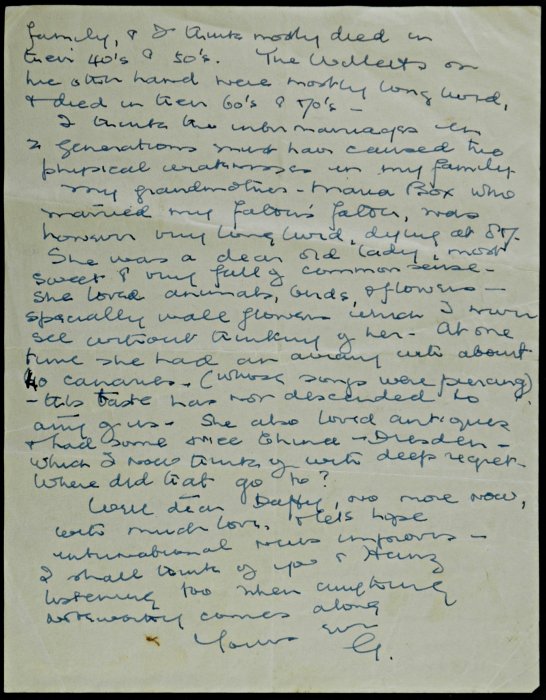 family, & I think mostly died in
their 40's & 50's. The Willetts on
the other hand were mostly long lived,
& died in their 60's & 70's –
I think the intermarriages in
2 generations must have caused the
physical weaknesses in my family.
My grandmother – Maria Box who
married my father's father, was
however very long lived, dying at 87.
She was a dear old lady, most
sweet & very full of common sense –
She loved animals, birds, & flowers –
specially wall flowers which I never
see without thinking of her – At one
time she had an aviary with about
40 canaries – (whose songs were piercing)
– this taste has not descended to
any of us – She also loved antiques
& had some nice china – Dresden –
which I now think of with deep regret –
Where did that go to?
Well dear Daffy, no more now,
with much love, & let's hope
international news improves –
I shall think of you & Heinz
listening too when anything
noteworthy comes along
Yours ever
G.